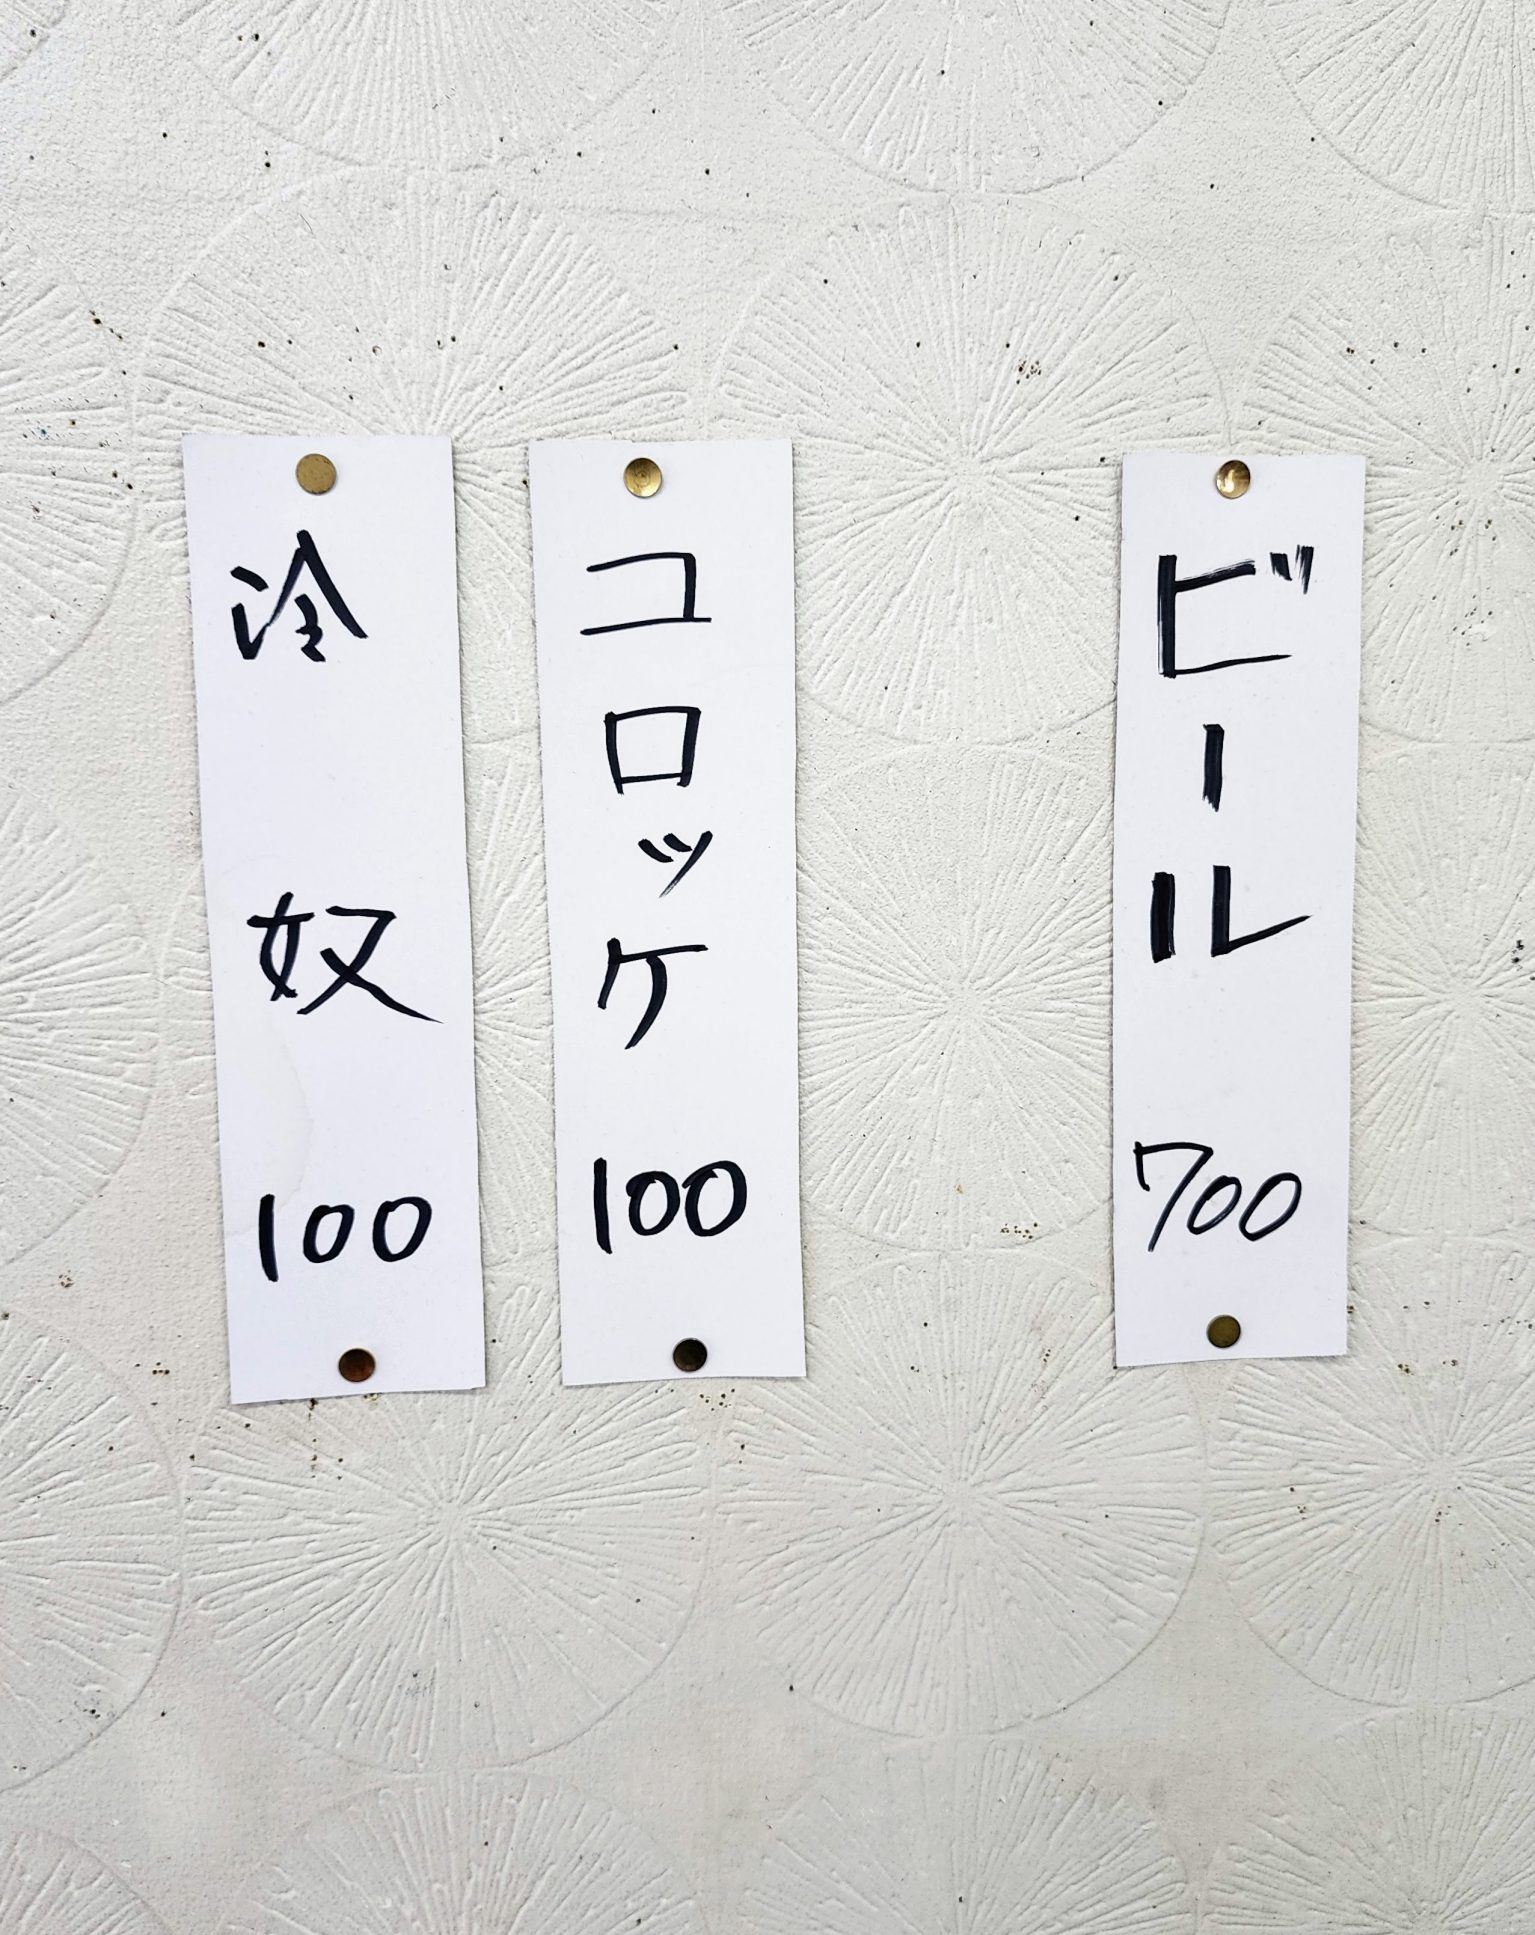 ビール 700
コロッケ 100
冷奴 100